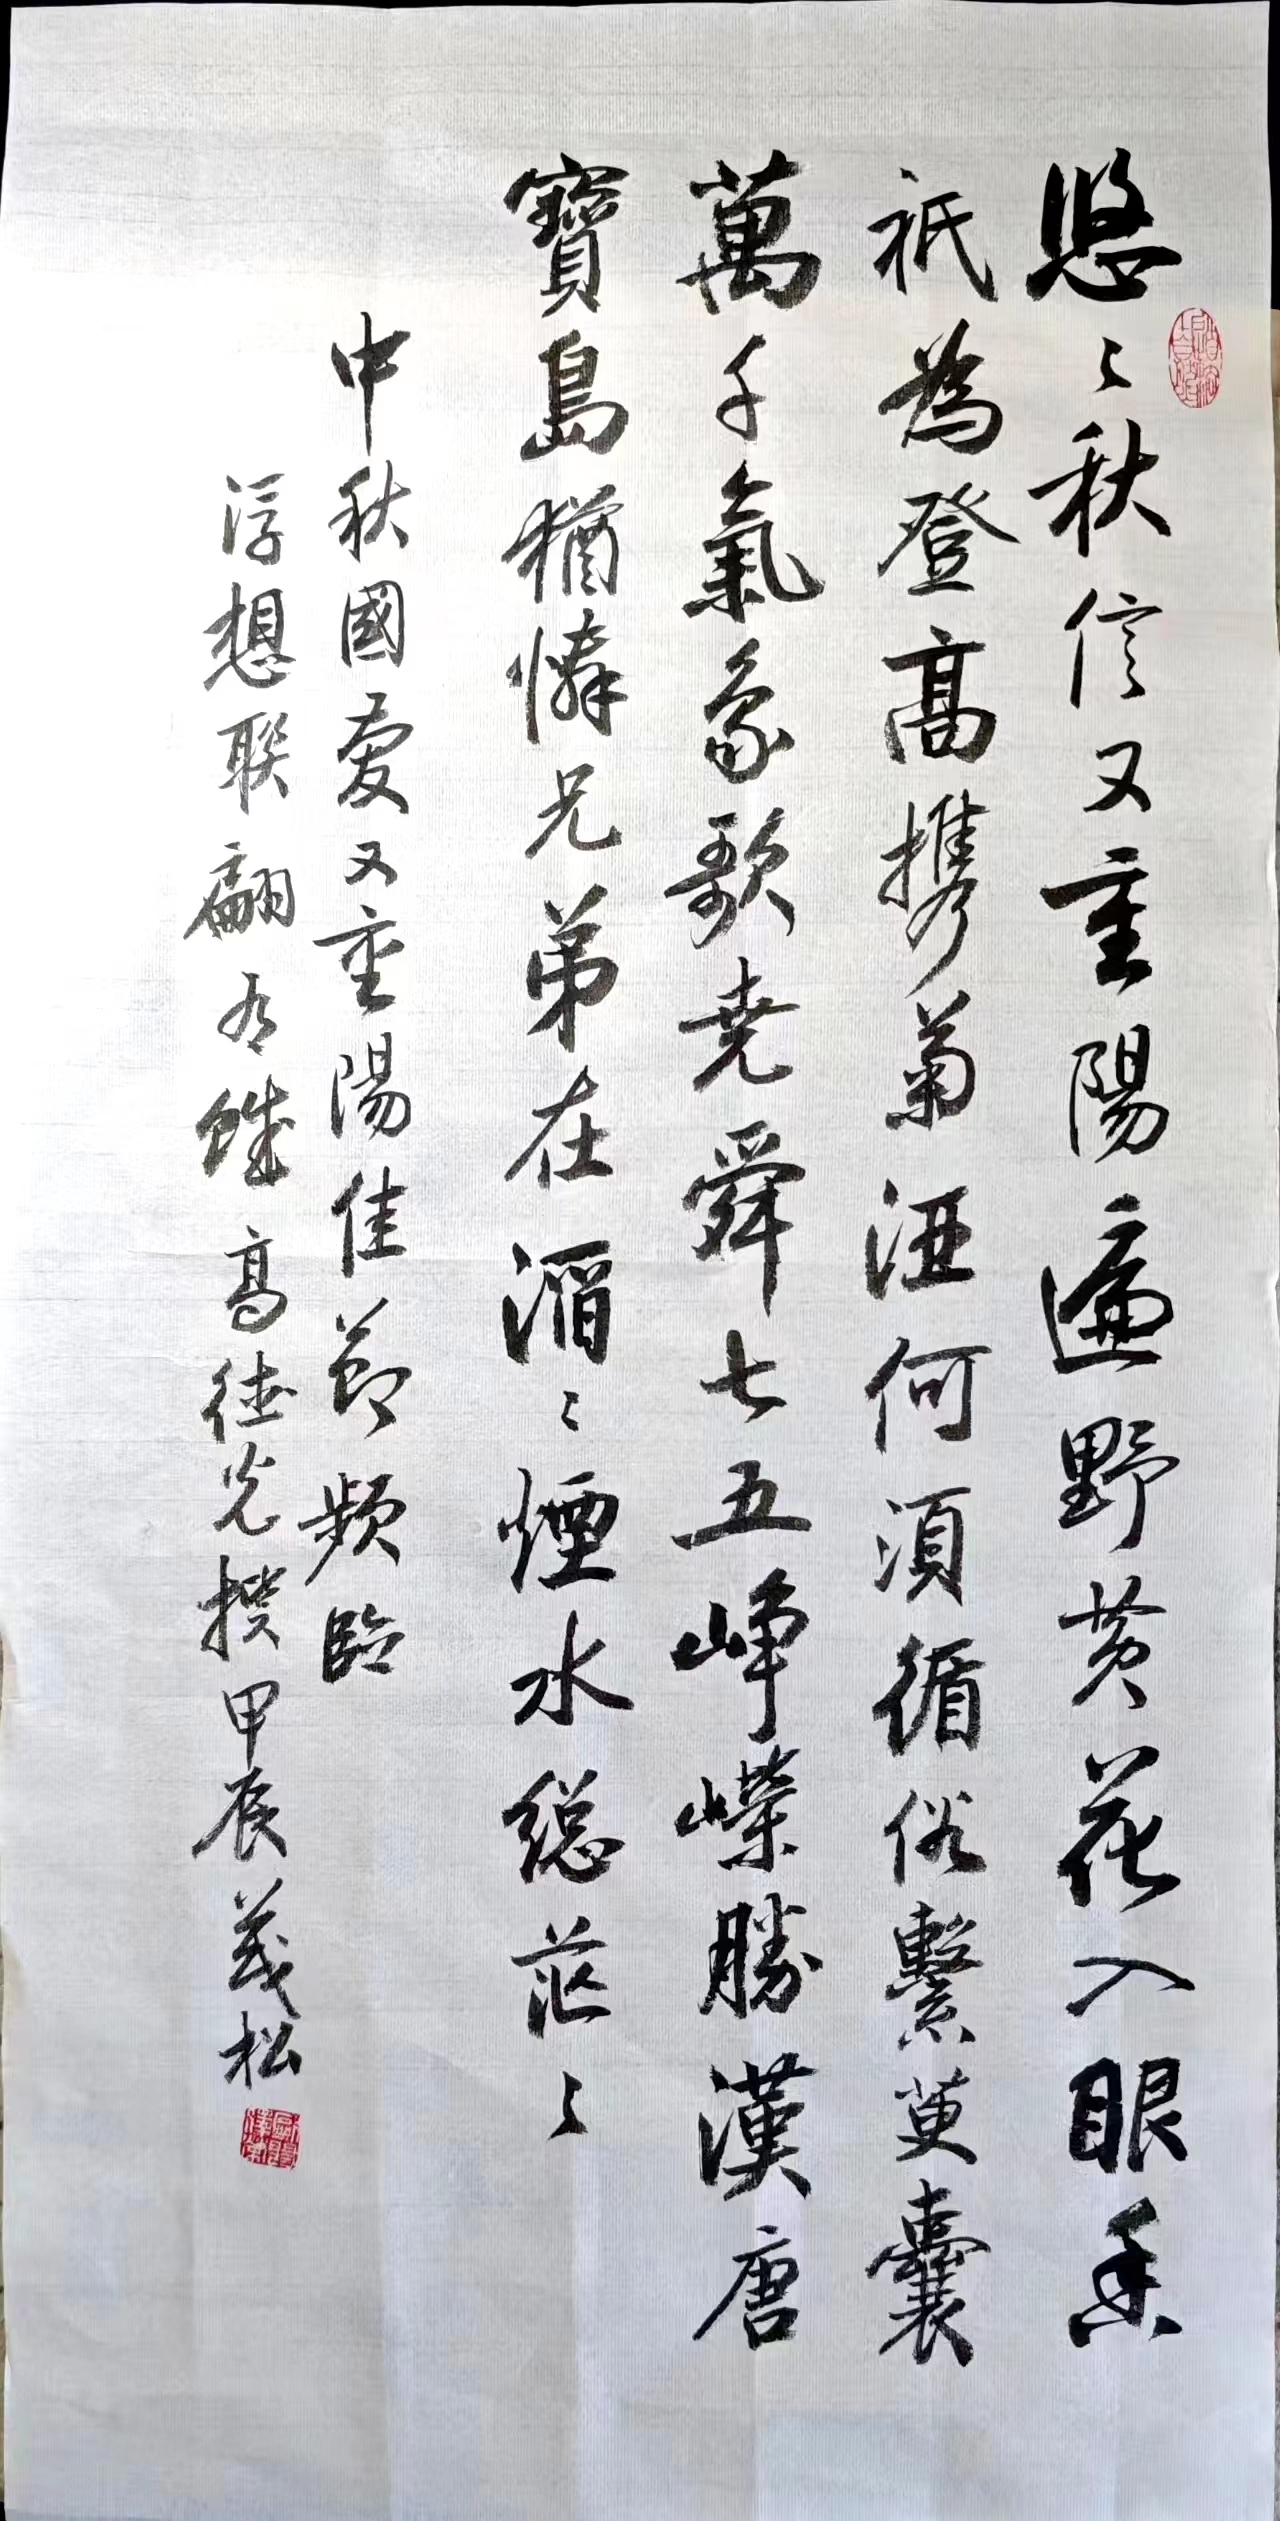 悠〻秋信又重陽遍野黄花入眼香
祇為登高携菊酒何須循俗繫萸囊
萬千氣象歌堯舜七五崢嶸勝漢唐
寶島猶憐兄弟在滔〻煙水總茫〻
中秋國慶又重陽佳節頻臨
浮想联翩有賦 高德光撰甲辰義松